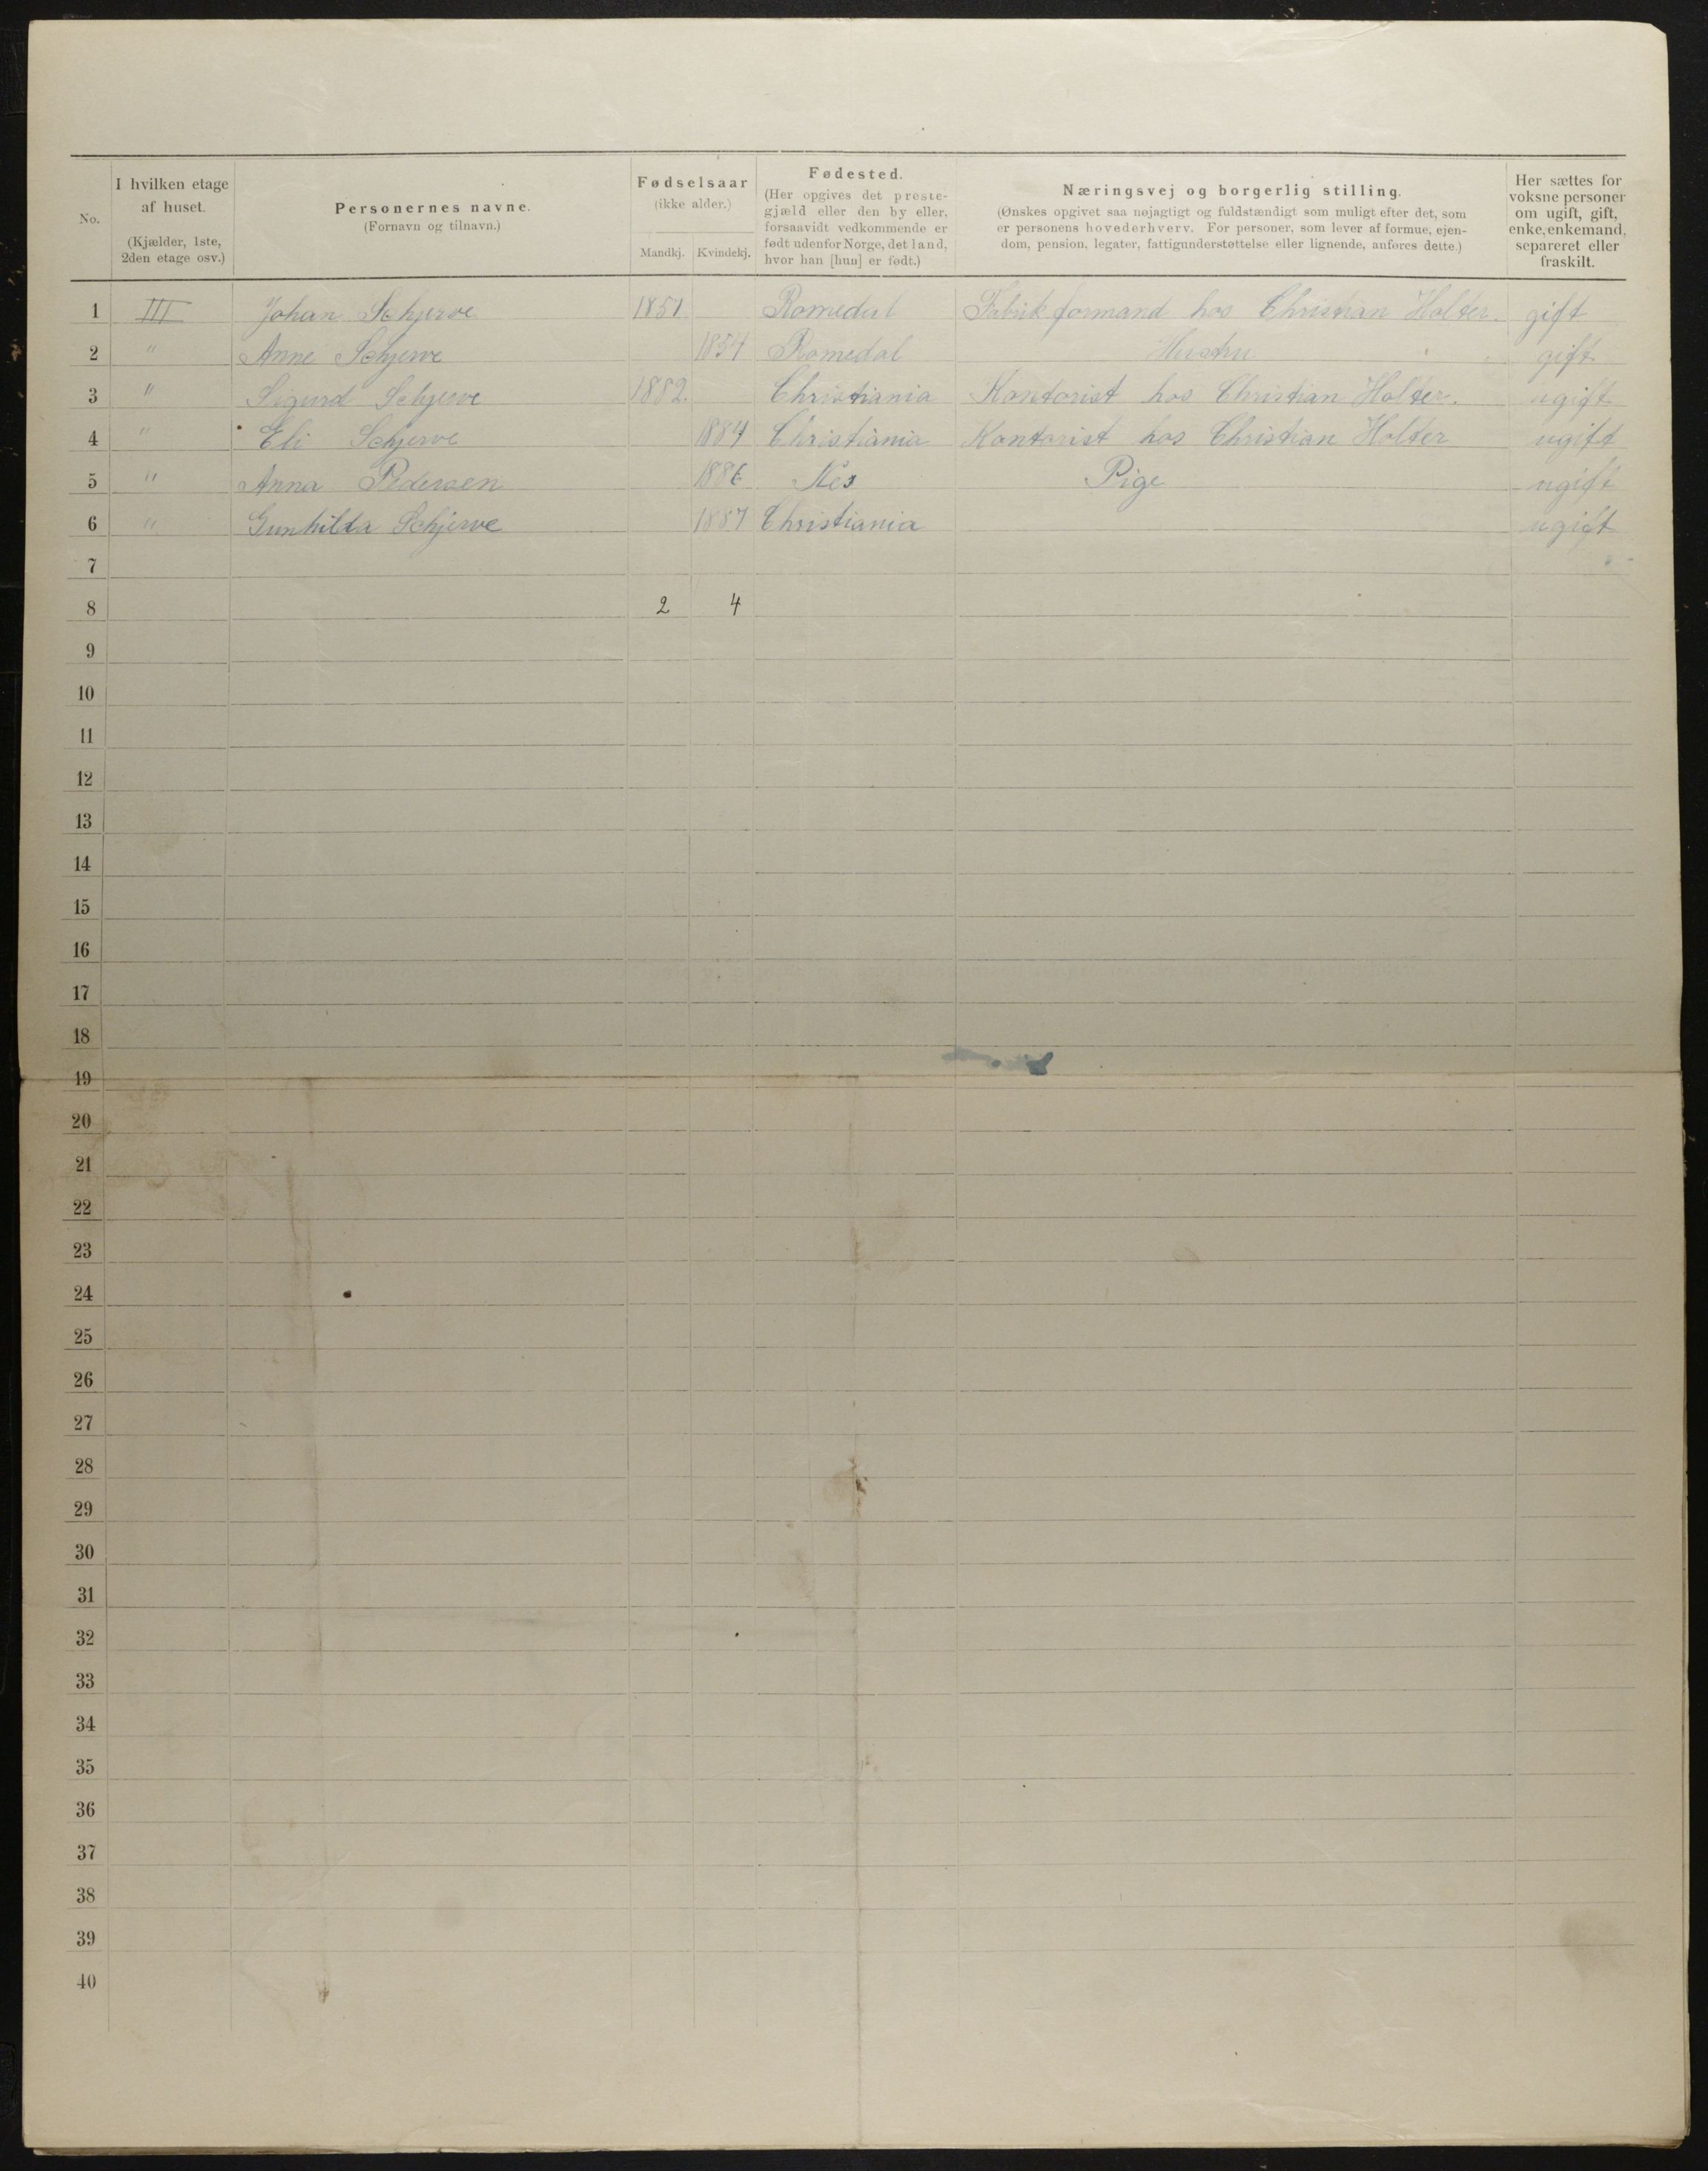 No.
I hvilken etage af huset.
(Kjælder, 1ste, 2den etage osv.)
Personernes navne.
(Fornavn og tilnavn.)
Fødselsaar
(ikke alder.)
Mandkj. Kvindekj.
Fødested.
(Her opgives det preste-
gjæld eller den by eller,
forsaavidt vedkommende er
født udenfor Norge, det land,
hvor han [hun] er født.)
Næringsvej og borgerlig stilling.
(Ønskes opgivet saa nøjagtigt og fuldstændigt som muligt efter det, som
er personens hovederhverv. For personer, som lever af formue, ejen-
dom, pension, legater, fattigunderstøttelse eller lignende, anføres dette.)
Her sættes for
voksne personer
om ugift, gift,
enke, enkemand,
separeret eller
fraskilt.
1 III Johan Schjerve 1851 Romedal Fabrikformand hos Christian Holter. gift
2 " Anne Schjerve 1854 Romedal Hustru gift
3 " Sigurd Schjerve 1882. Christiania Kontorist hos Christian Holter. ugift
4 " Eli Schjerve 1884 Christiania Kontorist hos Christian Holter ugift
5 " Anna Pedersen 1886 Nes Pige ugift
6 " Gunhilda Schjerve 1887 Christiania ugift
7
8 2 4
9
10
11
12
13
14
15
16
17
18
19
20
21
22
23
24
25
26
27
28
29
30
31
32
33
34
35
36
37
38
39
40